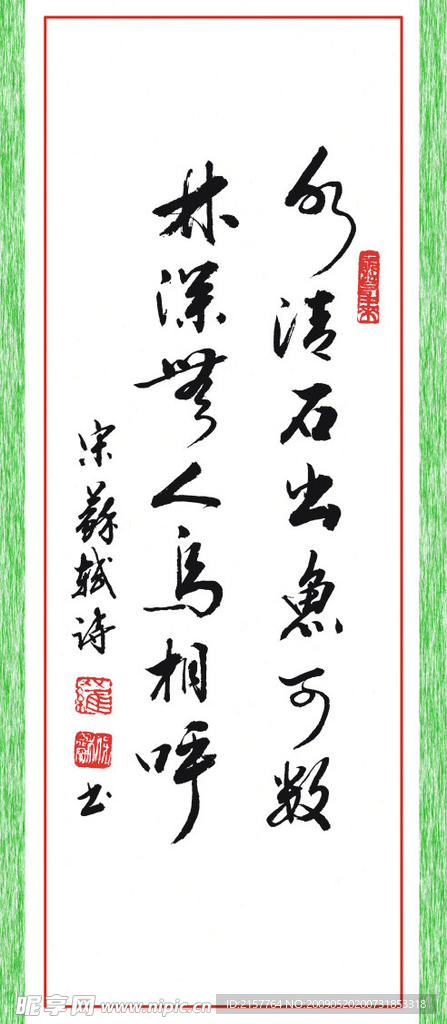 水清石出魚可数
林深無人鳥相呼
宋蘇軾诗
书
昵享网 www.nipic.cn
ID:2157764 NO:20090520200731853318